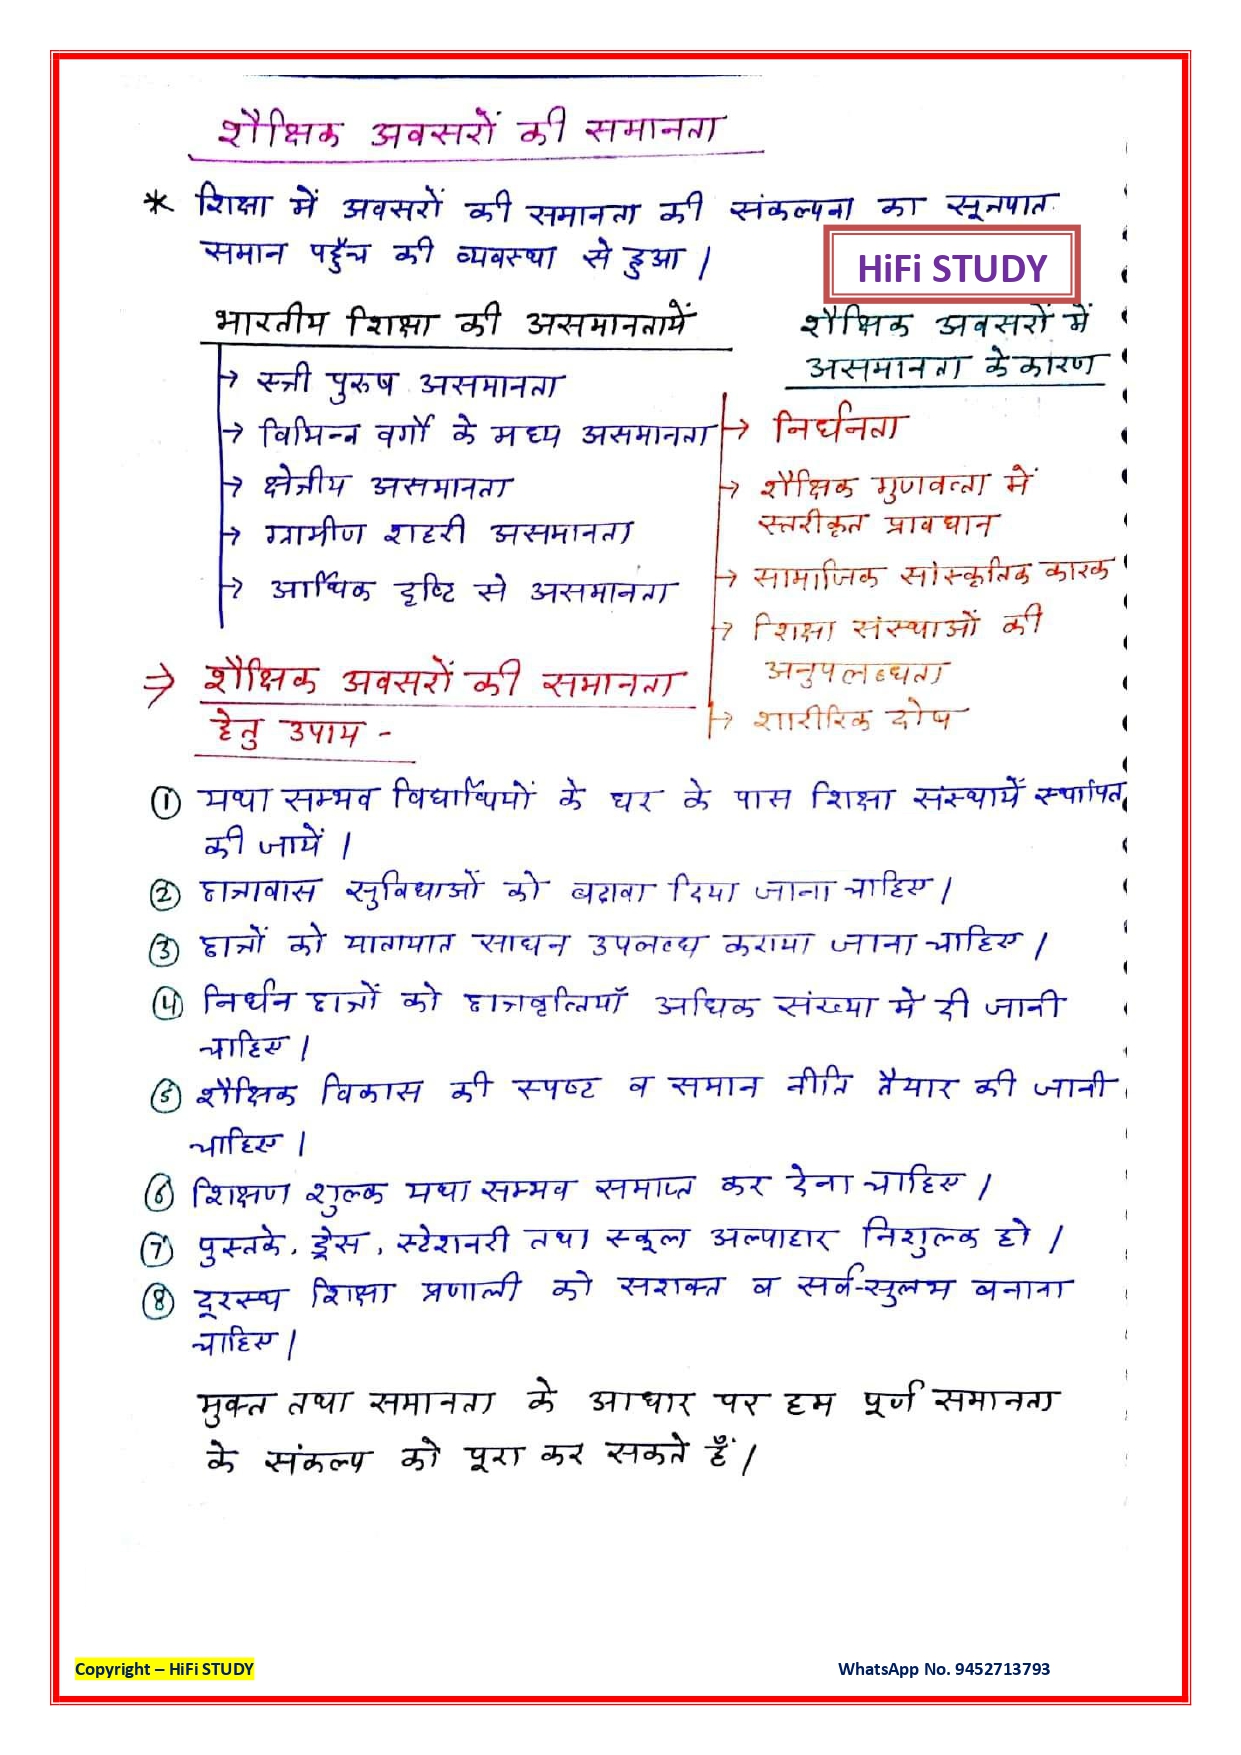 शैक्षिक अवसरों की समानता
* शिक्षा में अवसरों की समानता की संकल्पना का सूत्रपात
समान पहुँच की व्यवस्था से हुआ |
HiFi STUDY
भारतीय शिक्षा की असमानतायें
→ स्त्री पुरुष असमानता
→ विभिन्न वर्गों के मध्य असमानता
→ क्षेत्रीय असमानता
→ ग्रामीण शहरी असमानता
→ आर्थिक दृष्टि से असमानता
शैक्षिक अवसरों में
असमानता के कारण
→ निर्धनता
→ शैक्षिक गुणवत्ता में
स्तरीकृत प्रावधान
→ सामाजिक सांस्कृतिक कारक
→ शिक्षा संस्थाओं की
अनुपलब्धता
→ शारीरिक दोष
⇒ शैक्षिक अवसरों की समानता
हेतु उपाय -
① यथा सम्भव विद्यार्थियों के घर के पास शिक्षा संस्थायें स्थापित
की जायें |
② छात्रावास सुविधाओं को बढ़ावा दिया जाना चाहिए |
③ छात्रों को यातायात साधन उपलब्ध कराया जाना चाहिए |
④ निर्धन छात्रों को छात्रवृत्तियाँ अधिक संख्या में दी जानी
चाहिए |
⑤ शैक्षिक विकास की स्पष्ट व समान नीति तैयार की जानी
चाहिए |
⑥ शिक्षण शुल्क यथा सम्भव समाप्त कर देना चाहिए |
⑦ पुस्तके, ड्रेस, स्टेशनरी तथा स्कूल अल्पाहार निशुल्क हो |
⑧ दूरस्थ शिक्षा प्रणाली को सशक्त व सर्व-सुलभ बनाना
चाहिए |
मुक्त तथा समानता के आधार पर हम पूर्ण समानता
के संकल्प को पूरा कर सकते हैं |
Copyright – HiFi STUDY
WhatsApp No. 9452713793